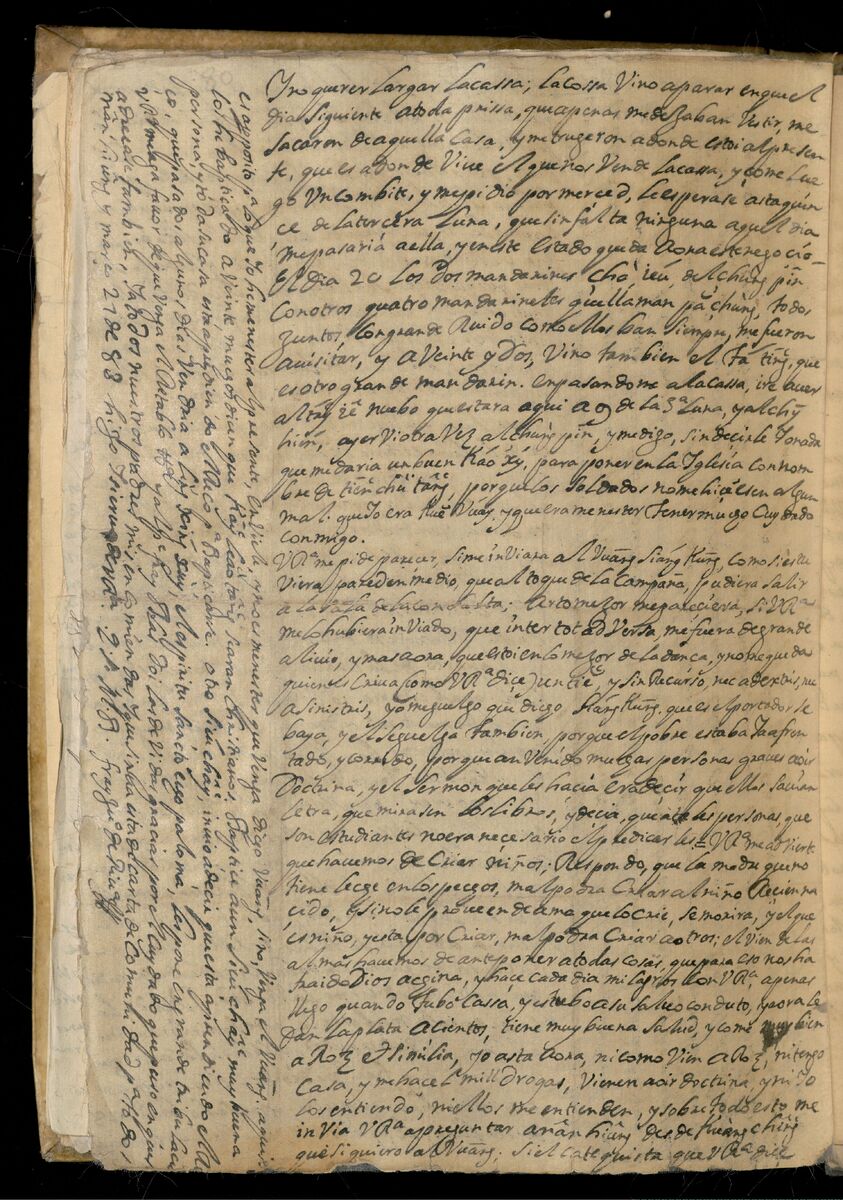 Y no querer largar la cassa; la cossa vino a parar en que el
dia siguiente a toda prissa, que apenas me dexaban vestir, me
sacaron de aquella casa, y me truxeron a donde estoi al presen
te, que es a donde vive el q̃ nos vende la cassa, y come lue
go un combite, y me pidio por merced, le esperase asta quin
ce de la tercera Luna, que sin falta ninguna aquel dia
me pasaria a ella, y en este estado queda aora este negocio
El dia 20 los dos mandarines cha, ieu, del chung pin
con otros quatro mandarinetes q̃ llaman pa chung, todos
juntos, con grande Ruido como ellos ban siempre, me fueron
a visitar, y a veinte y dos, vino tambien el Fa ting, que
es otro grande mandarin. en pasandome a la cassa, ire a ver
al nuebo que estara aqui a 9 de la 3ª Luna, y al chy
hien, ayer vi otra vez al chung pin, y me dixo, sin decirle Yo nada
que me daria un buen Kao xy, para poner en la Iglesia con nom
bre de tien chu tang, porque los soldados no me hiciesen algun
mal. que Yo era y que era menester tener mucho cuydado
conmigo.
VRª me pide parecer, si me inviara al Vuang Siang Kung, como si estu
viera pared en medio, que al toque de la campana, pudiera salir
a la de la consulta; arto mejor me pareciera, si VRª
me lo hubiera inviado, que inter tot adversa, me fuera de grande
alivio, y mas aora, que estoi en lo mejor de la dança, y no me queda
quien escriva (como VRª dice) un tie, y sin Recurso, nec a dextris, nec
a sinistris, yo me guelgo que diego Siang Kung, que es el portador se
baya, y el se guelga tambien, porque el pobre estaba ya afren
tado, y corrido, porque an venido muchas personas graves a oir
Doctrina, y el sermon que les hacia era decir que ellos savian
letra, que mirasen los libros, y decia, que a tales personas, que
son estudiantes no era necesario el predicarles = VRª me advierte
que hacemos de criar niños; Respondo, que la madre que no
tiene leche en los pechos, mal podra criar al niño Recien na
cido, y si no le proveen de ama que lo crie, se morira, y el que
es niño, y esta por criar, mal podra criar a otros; el vien de las
almas havemos de anteponer a todas cosas, que para esto nos ha
traido Dios a china, y hace cada dia milagros con VRª, apenas
llego quando tubo cassa, y estubo a su salvo conduto, y aora le
dan la plata a cientos, tiene muy buena salud, y come muy bien
aRoz et similia, yo asta aora, ni como vien aRoz, ni tengo
casa, y me hacen mill drogas, vienen a oir doctrina, y ni Yo
los entiendo, ni ellos me entienden, y sobre todo esto me
invia VRª a preguntar a nan hiung desde
que si quiero al Vuang; si el catequista que VRª dice
es aproposito pª lo que Yo he menester al presente, envie le no es menester que venga diego Vuang, sino, venga el Vuang, aqui
los he baptizado a veinte muchos dicen que se haran christianos, Baptice a un Sieu chay muy buena
persona, y toda la casa esta aprendiendo el Reço pª Baptizarse. otro sieu chay, invio a decir que esta aprendiendo el Re
ço, que pasados algunos dias vendria a . el espiritu sancto cuya paloma,
VRª me aga favor de que venga el Retablo y al Pe fray Juan dos los de vida, gracias por el cuydado que puso en
a todos nuestros padres mis encomiendas, y que sirva esta de carta de comunidad pª todos
nan hiung y março 27 de 83 hijo y siervo de VRª Q. S. M. B.